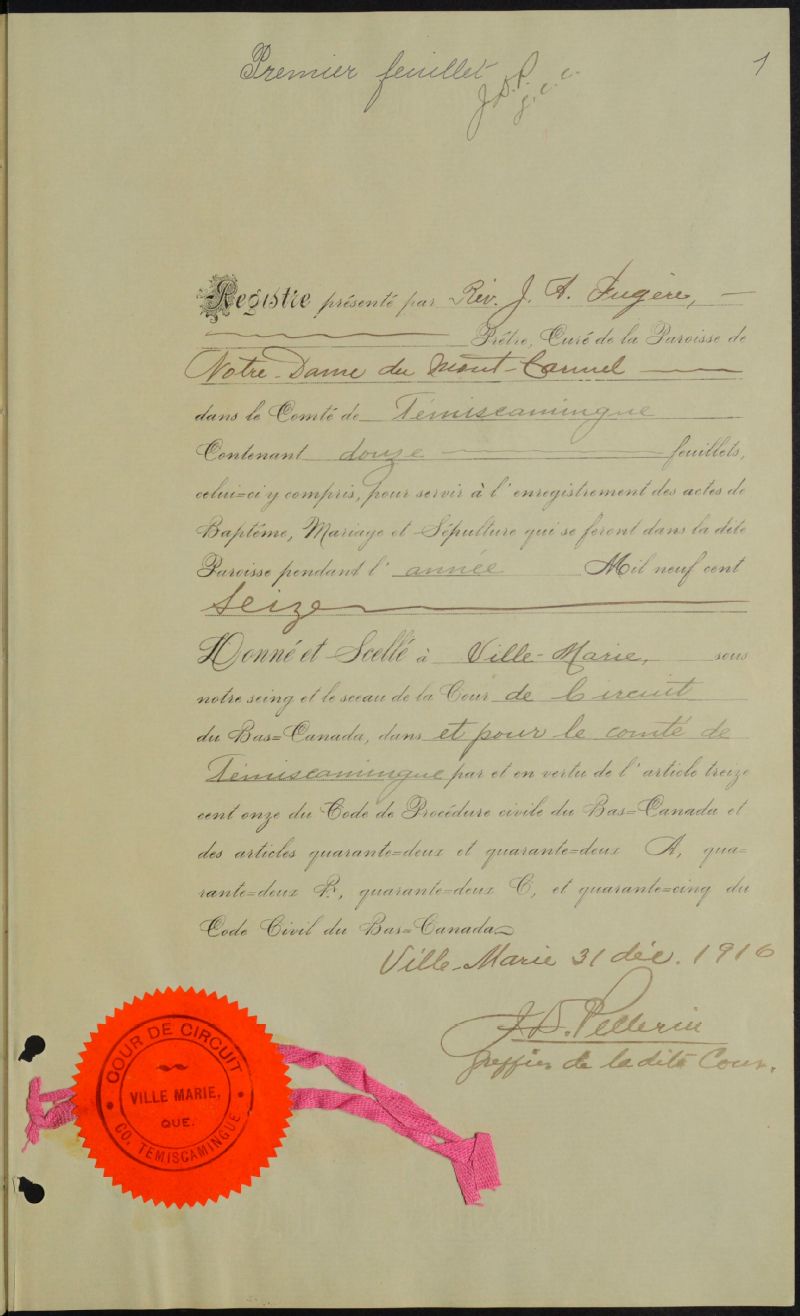 Premier feuillet
1
J.D.P.
g.c.c.
Registre présenté par Rév. J. A. Fugère,
Prêtre, Curé de la Paroisse de
Notre-Dame du Mont-Carmel
dans le Comté de Témiscamingue
Contenant douze feuillets,
celui=ci y compris, pour servir à l'enregistrement des actes de
Baptême, Mariage et Sépulture qui se feront dans la dite
Paroisse pendant l'année Mil neuf cent
Seize
Donné et Scellé à Ville-Marie, sous
notre seing et le sceau de la Cour de Circuit
du Bas=Canada, dans et pour le comté de
Témiscamingue par et en vertu de l'article treize
cent onze du Code de Procédure civile du Bas=Canada et
des articles quarante=deux et quarante=deux A, qua=
rante=deux B, quarante=deux C, et quarante=cinq du
Code Civil du Bas=Canada
Ville-Marie 31 déc. 1916
J.D. Pellerin
greffier de ladite Cour.
COUR DE CIRCUIT
VILLE MARIE,
QUE.
CO. TEMISCAMINGUE